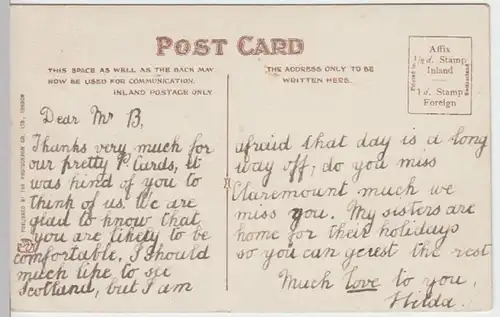 POST CARD
THIS SPACE AS WELL AS THE BACK MAY
NOW BE USED FOR COMMUNICATION.
INLAND POSTAGE ONLY.
THE ADDRESS ONLY TO BE
WRITTEN HERE.
Affix
1/2 d. Stamp
Inland
1 d. Stamp
Foreign
Printed in
Dear Mr B,
Thanks very much for
our pretty P. Cards, it
was kind of you to
think of us. We are
glad to know that
you are likely to be
comfortable. I should
much like to see
Scotland, but I am
afraid that day is a long
way off, do you miss
Claremount much we
miss you. My sisters are
home for their holidays
so you can gerest the rest
Much love to you,
Hilda.
PUBLISHED BY THE PHOTOCHROM CO. LTD., LONDON